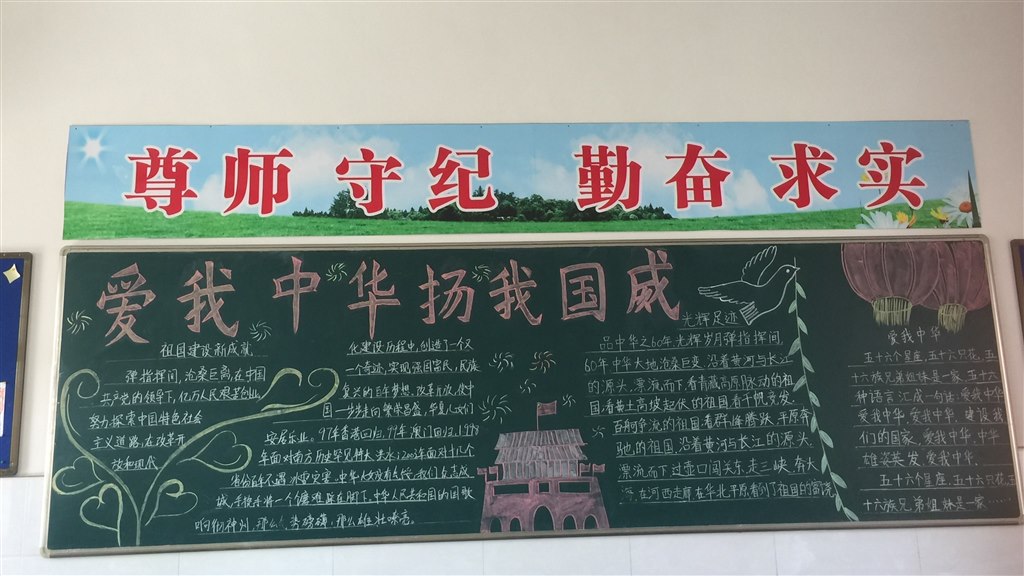 尊师 守纪 勤奋 求实
爱我中华扬我国威
祖国建设新成就
弹指挥间,沧桑巨离,在中国
共产党的领导下,亿万人民
努力探索中国特色社会
主义道路,在改革开
放和现代
化建设历程中,创造了一个又
一个奇迹,实现强国富民,民族
复兴的百年梦想,改革开放,使中
国一步步走向繁荣昌盛,华夏儿女们
安居乐业。97年香港回归,99年澳门回归,1998
年面对南方历史罕见特大洪水,2008年面对十几个
省份百年不遇
城,手挽手将一个个
中华人民共和国的国歌
响彻神州,那么 那么雄壮嘹亮。
光辉足迹
品中华之60年光辉岁月弹指挥间,
60年中华大地沧桑巨变,沿着黄河与长江
的源头,漂流而下看青藏高原脉动的祖
国,看黄土高坡起伏的祖国看千帆竞发,
百舸争流的祖国看群峰腾跃,平原奔
驰的祖国,沿着黄河与长江的源头,
漂流而下过壶口闯关东,走三峡,奔大
海,在河西走廊在华北平原看到了祖国的富饶
爱我中华
五十六个星座,五十六只花,五
十六族兄弟姐妹是一家,五十六
种语言,汇成一句话,爱我中华
爱我中华,爱我中华,建设我
们的国家,爱我中华,中华
雄姿英发,爱我中华,
五十六个星座,五十六只花,五
十六族兄弟姐妹是一家……